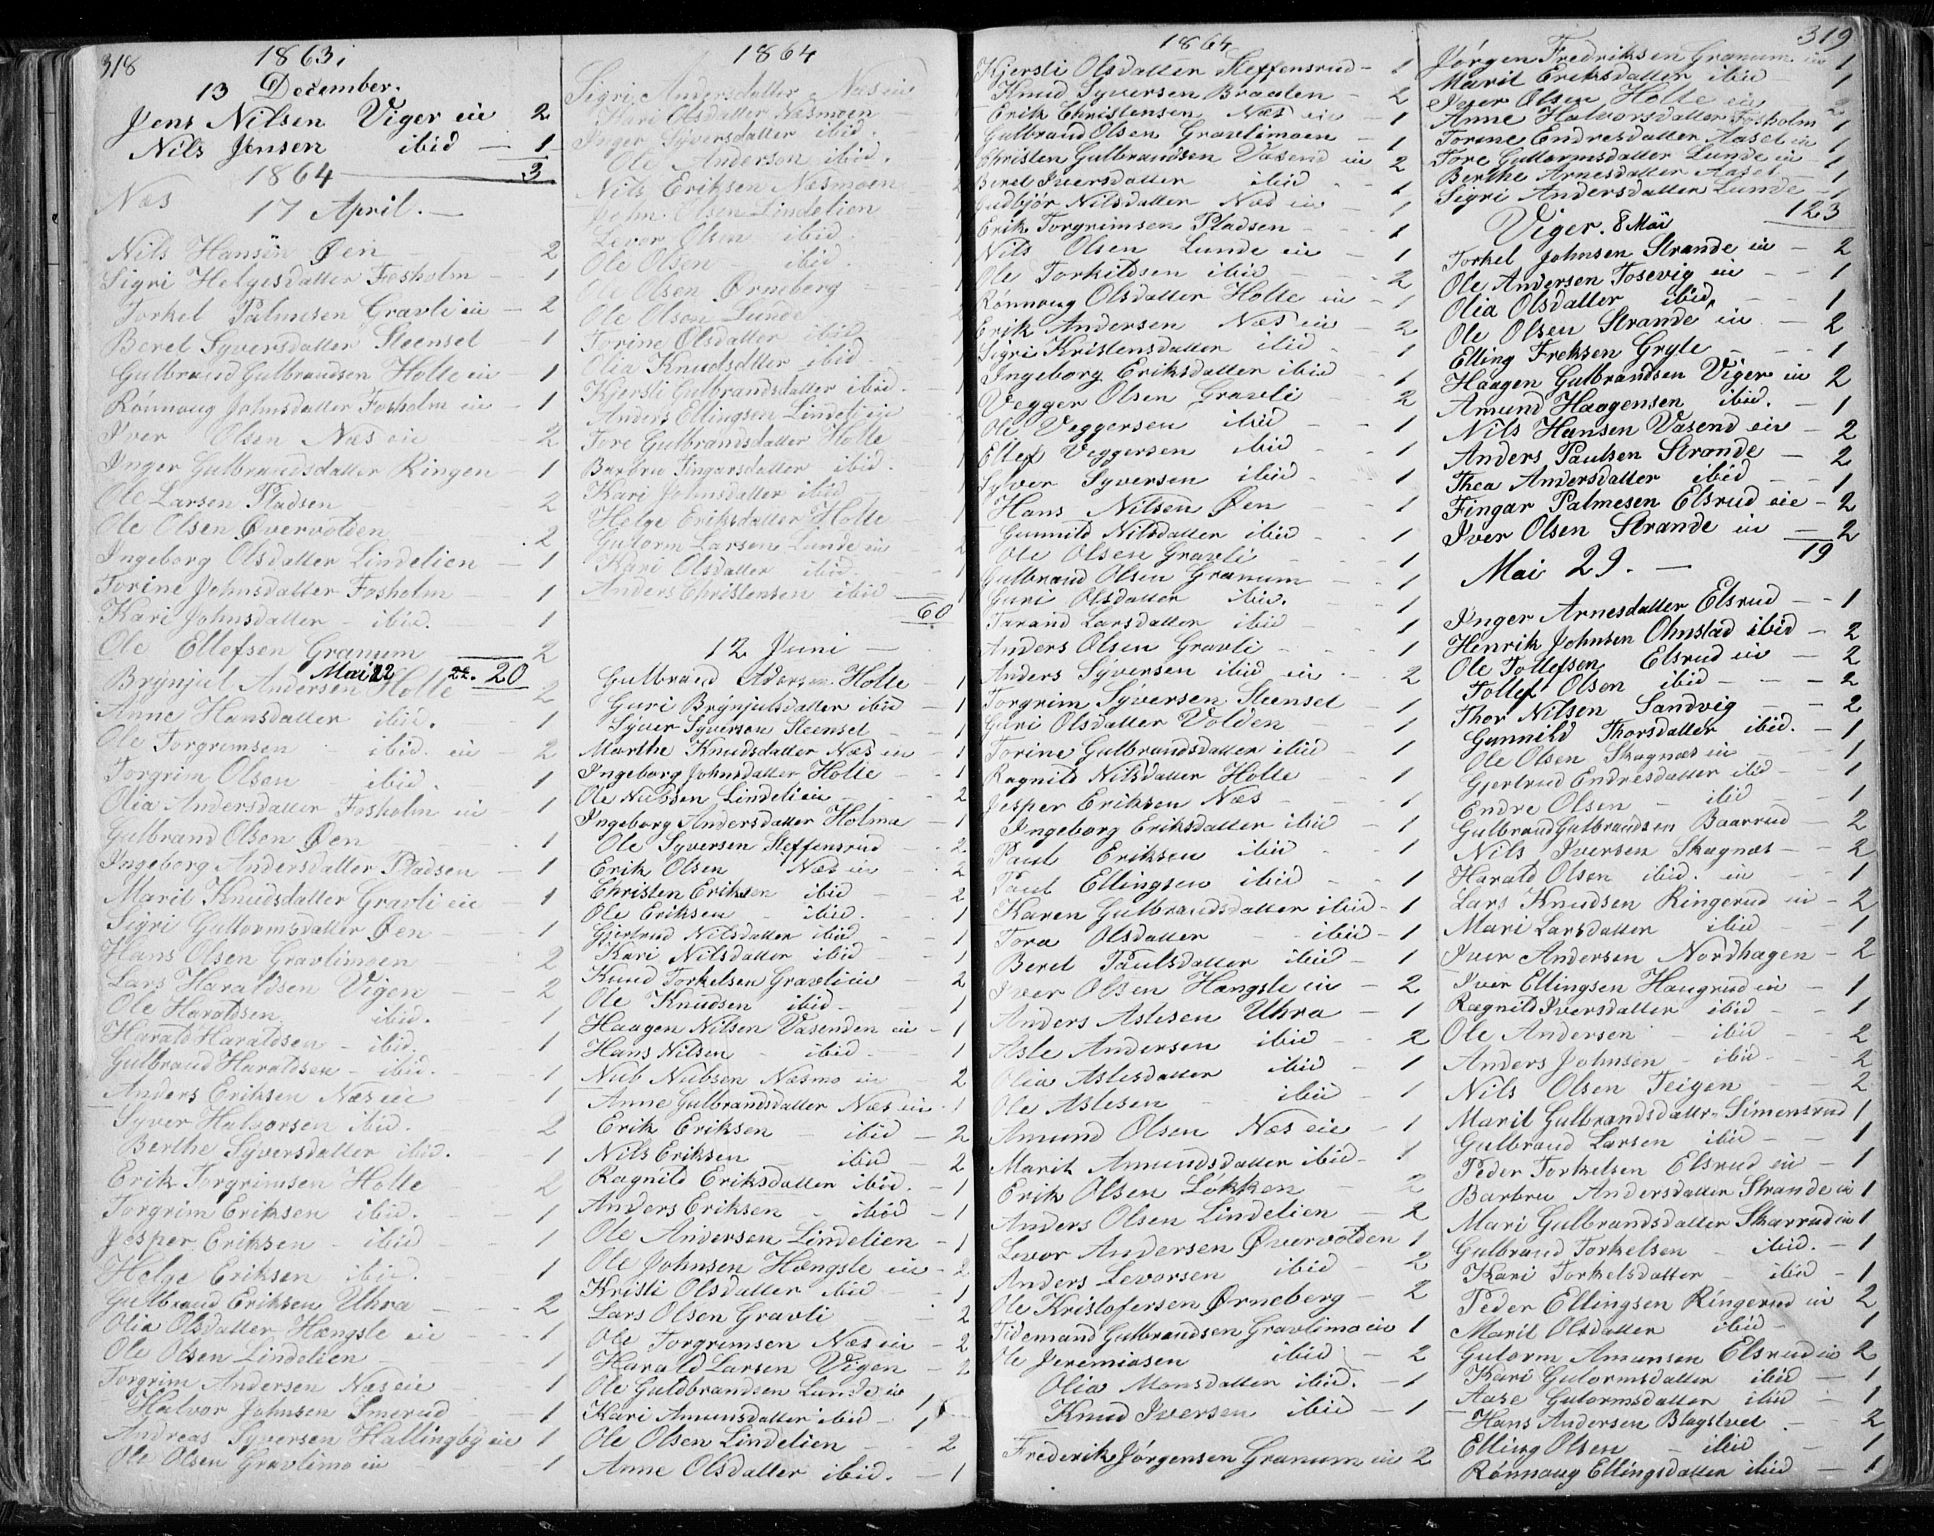 318
1863,
13 December.
Jens Nilsen Viger eie 2
Nils Jensen ibid - 1
1864 3
Næs
17 April.
Nils Hansen Øen - 2
Sigri Helgesdatter Fosholm - 1
Torkel Palmesen Gravli eie - 2
Berel Syversdatter Steensel - 1
Gulbrand Gulbrandsen Holte eie 1
Rønnoug Johnsdatter Fosholm eie - 1
Iver Olsen Næs eie - 2
Inger Gulbrandsdatter Ringen - 1
Ole Larsen Pladsen - 2
Ole Olsen Øvervolden - 2
Ingeborg Olsdatter Lindelien - 1
Torine Johnsdatter Fosholm - 1
Kari Johnsdatter - ibid. - 1
Ole Ellefsen Granum 2
Mai 22 20
Brynjul Andersen Holte 2
Anne Hansdatter ibid. 1
Ole Torgrimsen ibid. eie - 2
Torgrim Olsen ibid. 1
Olia Andersdatter Fosholm eie 1
Gulbrand Olsen Øen 1
Ingeborg Andersdatter Pladsen - 1
Marit Knudsdatter Gravli eie - 1
Sigri Guttormsdatter Øen - 1
Hans Olsen Gravlimoen - 2
Lars Haraldsen Vigen - 2
Ole Haraldsen ibid. 1
Harald Haraldsen - ibid. 1
Gulbrand Haraldsen - ibid. - 1
Anders Eriksen Næs eie - 1
Syver Halvorsen ibid. 2
Berthe Syversdatter ibid. - 1
Erik Torgrimsen Holte 2
Torgrim Eriksen ibid. - 1
Jesper Eriksen - ibid - 1
Helge Eriksen ibid. 1
Gulbrand Eriksen Uhra - 2
Olia Olsdatter Hængsle eie - 1
Ole Olsen Lindelien - 1
Torgrim Andersen Næs eie - 1
Halvor Johnsen Smerud - 1
Andreas Syversen Hallingby eie 1
Ole Olsen Gravlimo eie - 1
1864
Sigri Andersdatter Næs eie
Kari Olsdatter Næsmoen
Inger Syversdatter ibid.
Ole Anderson ibid.
Nils Eriksen Næsmoen
John Olsen Lindelien
Levor Olsen ibid.
Ole Olsen - ibid.
Ole Olsen Ørneberg
Ole Olson Lunde
Torine Olsdatter ibid
Olia Knudsdatter ibid
Kjersti Gulbrandsdatter ibid.
Anders Ellingsen Lindeli eie
Tore Gulbrandsdatter Holte
Barbru Fingarsdatter ibid.
Kari Johnsdatter ibid
Helge Eriksdatter Holte
Gutorm Larsen Lunde eie
Kari Olsdatter ibid.
Anders Christensen ibid
60
12 Juni -
Gulbrand Andersen Holte - 1
Guri Brynjulsdatter ibid - 1
Syver Syversen Steensel - 1
Marthe Knudsdatter Næs eie 1
Ingeborg Johnsdatter Holte - 1
Ole Nubsen Lindeli eie - 2
Ingeborg Andersdatter Holma - 1
Ole Syversen Steffensrud - 2
Erik Olsen Næs eie - 2
Christen Eriksen ibid - 2
Ole Eriksen ibid. - 1
Gjertrud Nilsdatter ibid - 1
Kari Nilsdatter ibid - 1
Knud Torkelsen Gravli eie 2
Ole Knudsen ibid - 1
Haagen Nilsen Vasenden eie - 1
Hans Nilsen - ibid - 1
Nub Nubsen Næsmo eie - 2
Anne Gulbrandsdatter Næs eie - 1
Erik Eriksen - ibid - 2
Nils Eriksen ibid - 2
Ragnild Eriksdatter ibid. - 1
Anders Eriksen - ibid - 1
Ole Andersen Lindelien - 1
Ole Johnsen Hængsle eie - 2
Kristi Olsdatter ibid - 1
Lars Olsen Gravli - 2
Ole Torgrimsen Næs eie - 2
Harald Larsen Vigen - 2
Ole Guldbrandsen Lunde eie 1
Kari Amunsdatter ibid - 1
Ole Olsen Lindelien - 2
Anne Olsdatter ibid. - 1
1864
Kjersti Olsdatter Steffensrud - 1
Knud Syversen Braaten - 2
Erik Christensen Næs eie - 1
Gulbrand Olsen Gravlimoen - 1
Christen Gulbrandsen Vasend eie 2
Berel Iversdatter ibid - 1
Gudbjør Nilsdatter Næs eie - 1
Erik Torgrimsen Pladsen - 1
Nils Olsen Lunde eie - 1
Ole Torkildsen ibid - 2
Rønnoug Olsdatter Holte eie - 1
Erik Andersen Næs eie - 2
Sigri Kristensdatter ibid - 1
Ingeborg Eriksdatter ibid - 1
Vegger Olsen Gravli - 2
Ole Veggersen ibid - 1
Ellef Veggersen ibid - 1
Sylver Syversen ibid - 1
Hans Nilsen Øen - 1
Gunnild Nilsdatter ibid - 1
Ole Olsen Gravli - 1
Gulbrand Olsen Granum - 1
Guri Olsdatter ibid. - 1
Tarand Larsdatter ibid - 1
Anders Olsen Gravli - 1
Anders Syversen ibid eie - 2
Torgrim Syversen Steensel 1
Guri Olsdatter Volden - 1
Torine Gulbrandsdatter ibid - 1
Ragnild Nilsdatter Holte - 1
Jesper Eriksen Næs - 1
Ingeborg Eriksdatter ibid - 1
Paul Eriksen ibid - 1
Paul Ellingsen ibid - 1
Karen Gulbrandsdatter ibid - 1
Tora Olsdatter - ibid - 1
Berel Paulsdatter ibid - 1
Iver Olsen Hængsle eie - 2
Anders Aslesen Uhra - 1
Asle Andersen ibid - 2
Olia Aslesdatter ibid - 1
Ole Aslesen - ibid - 1
Amund Olsen Næs eie - 1
Marit Amundsdatter ibid - 1
Erik Olsen Løkken - 2
Anders Olsen Lindelien - 2
Levor Andersen Øvervolden 1
Anders Levorsen ibid - 2
Ole Kristofersen Ørneberg - 2
Tidemand Gulbrandsen Gravlimo eie 1
Ole Jeremiasen ibid - 2
Olia Monsdatter ibid. - 1
Knud Iversen ibid - 1
Frederik Jørgensen Granum eie 2
319
Jørgen Fredriksen Granum eie 1
Marit Eriksdatter ibid 1
Iver Olsen Holte eie - 2
Anne Halvorsdatter Fosholm 1
Torine Endresdatter Aasel eie 1
Tore Guttormsdatter Lunde eie - 1
Berthe Arnesdatter Aasel - 1
Sigri Andersdatter Lunde - 1
123
Viger. 8 Mai
Torkel Johnsen Strande eie - 2
Ole Andersen Tosevig eie - 1
Olia Olsdatter ibid, - 1
Ole Olsen Strande eie - 2
Elling Freksen Gryte - 1
Haagen Gulbrandsen Viger eie 2
Amund Haagensen ibid. - 1
Nils Hansen Vasend eie - 2
Anders Paulsen Strande - 2
Thea Andersdatter ibid - 1
Fingar Palmesen Elsrud eie - 2
Iver Olsen Strande eie - 2
19
Mai 29. -
Inger Arnesdatter Elsrud - 1
Henrik Johnsen Ohnstad ibid - 2
Ole Tollefsen Elsrud eie - 2
Tollef Olsen ibid - 2
Thor Nilsen Sandvig - 2
Gunnild Thorsdatter ibid. - 1
Ole Olsen Skagnæs eie - 1
Gjertrud Endresdatter ibid - 1
Endre Olsen - ibid - 1
Gulbrand Gulbrandsen Baarrud - 2
Nils Iversen Skagnæs - 2
Harald Olsen ibid. eie - 1
Lars Knudsen Ringerud eie - 2
Mari Larsdatter ibid 1
Iver Andersen Nordhagen - 2
Iver Ellingsen Haugrud eie - 1
Ragnild Iversdatter ibid - 1
Ole Andersen - ibid - 2
Anders Johnsen - ibid - 2
Nils Olsen Teigen - 2
Marit Gulbrandsdattr Simensrud 1
Gulbrand Larsen ibid - 1
Peder Torkelsen Elsrud eie - 1
Barbru Andersdatter Strande eie 1
Mari Gulbrandsdatter Skarrud eie 1
Gulbrand Torkelsen - ibid. - 1
Kari Torkelsdatter - ibid - 1
Peder Ellingsen Ringerud eie 2
Marit Olsdatter ibid - 1
Gutorm Amunsen Elsrud eie 2
Kari Gutormsdatter ibid - 1
Aase Gutormsdatter ibid - 1
Hans Andersen Blagstvet - 2
Elling Olsen - ibid 1
Rønnaug Ellingsdatter ibid - 1